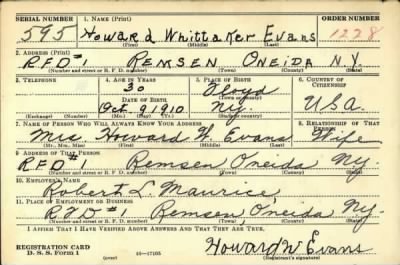 SERIAL NUMBER 1. NAME (Print) ORDER NUMBER
595 Howard Whittaker Evans 1228
(First) (Middle) (Last)
2. ADDRESS (Print)
RFD#1 REMSEN ONEIDA N.Y.
(Number and street or R. F. D. number) (Town) (County) (State)
3. TELEPHONE 4. AGE IN YEARS 5. PLACE OF BIRTH 6. COUNTRY OF CITIZENSHIP
30 Floyd
DATE OF BIRTH (Town or county)
Oct. 9 1910 N.Y. U.S.A.
(Exchange) (Number) (Mo.) (Day) (Yr.) (State or country)
7. NAME OF PERSON WHO WILL ALWAYS KNOW YOUR ADDRESS 8. RELATIONSHIP OF THAT PERSON
Mrs. Howard W. Evans Wife
(Mr., Mrs., Miss) (First) (Middle) (Last)
9. ADDRESS OF THAT PERSON
RFD#1 Remsen Oneida N.Y.
(Number and street or R. F. D. number) (Town) (County) (State)
10. EMPLOYER'S NAME
Robert L. Maurice
11. PLACE OF EMPLOYMENT OR BUSINESS
RFD#1 Remsen, Oneida N.Y.
(Number and street or R. F. D. number) (Town) (County) (State)
I AFFIRM THAT I HAVE VERIFIED ABOVE ANSWERS AND THAT THEY ARE TRUE.
REGISTRATION CARD Howard W Evans
D. S. S. Form 1 (over) 16—17105 (Registrant's signature)